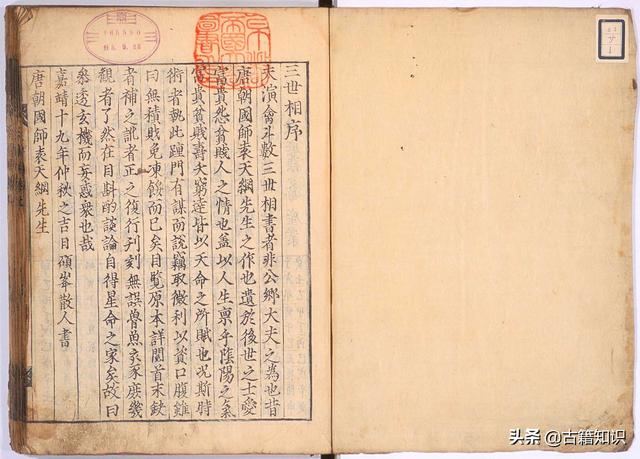 三世相序
夫演禽斗數三世相書者非公鄉大夫之為也昔
唐朝國師袁天綱先生之作也遺於後世之士愛
富貴怨貧賤人之情也蓋以人生禀乎陰陽之氣
富貴貧賤壽夭窮達皆以天命之所賦也况斯時
術者執此踵門有謀而說竊取微利以資口腹雖
曰無積賤免凍餒而已矣目覽原本詳閱首末缺
者補之訛者正之復行刊刻無誤魯魚亥豕庶幾
觀者了然在目斟酌談論自得星命之家矣故曰
參透玄機而妄惑衆也哉
嘉靖十九年仲秋之吉日碩峯散人書
唐朝國師袁天綱先生
头条 @古籍知识